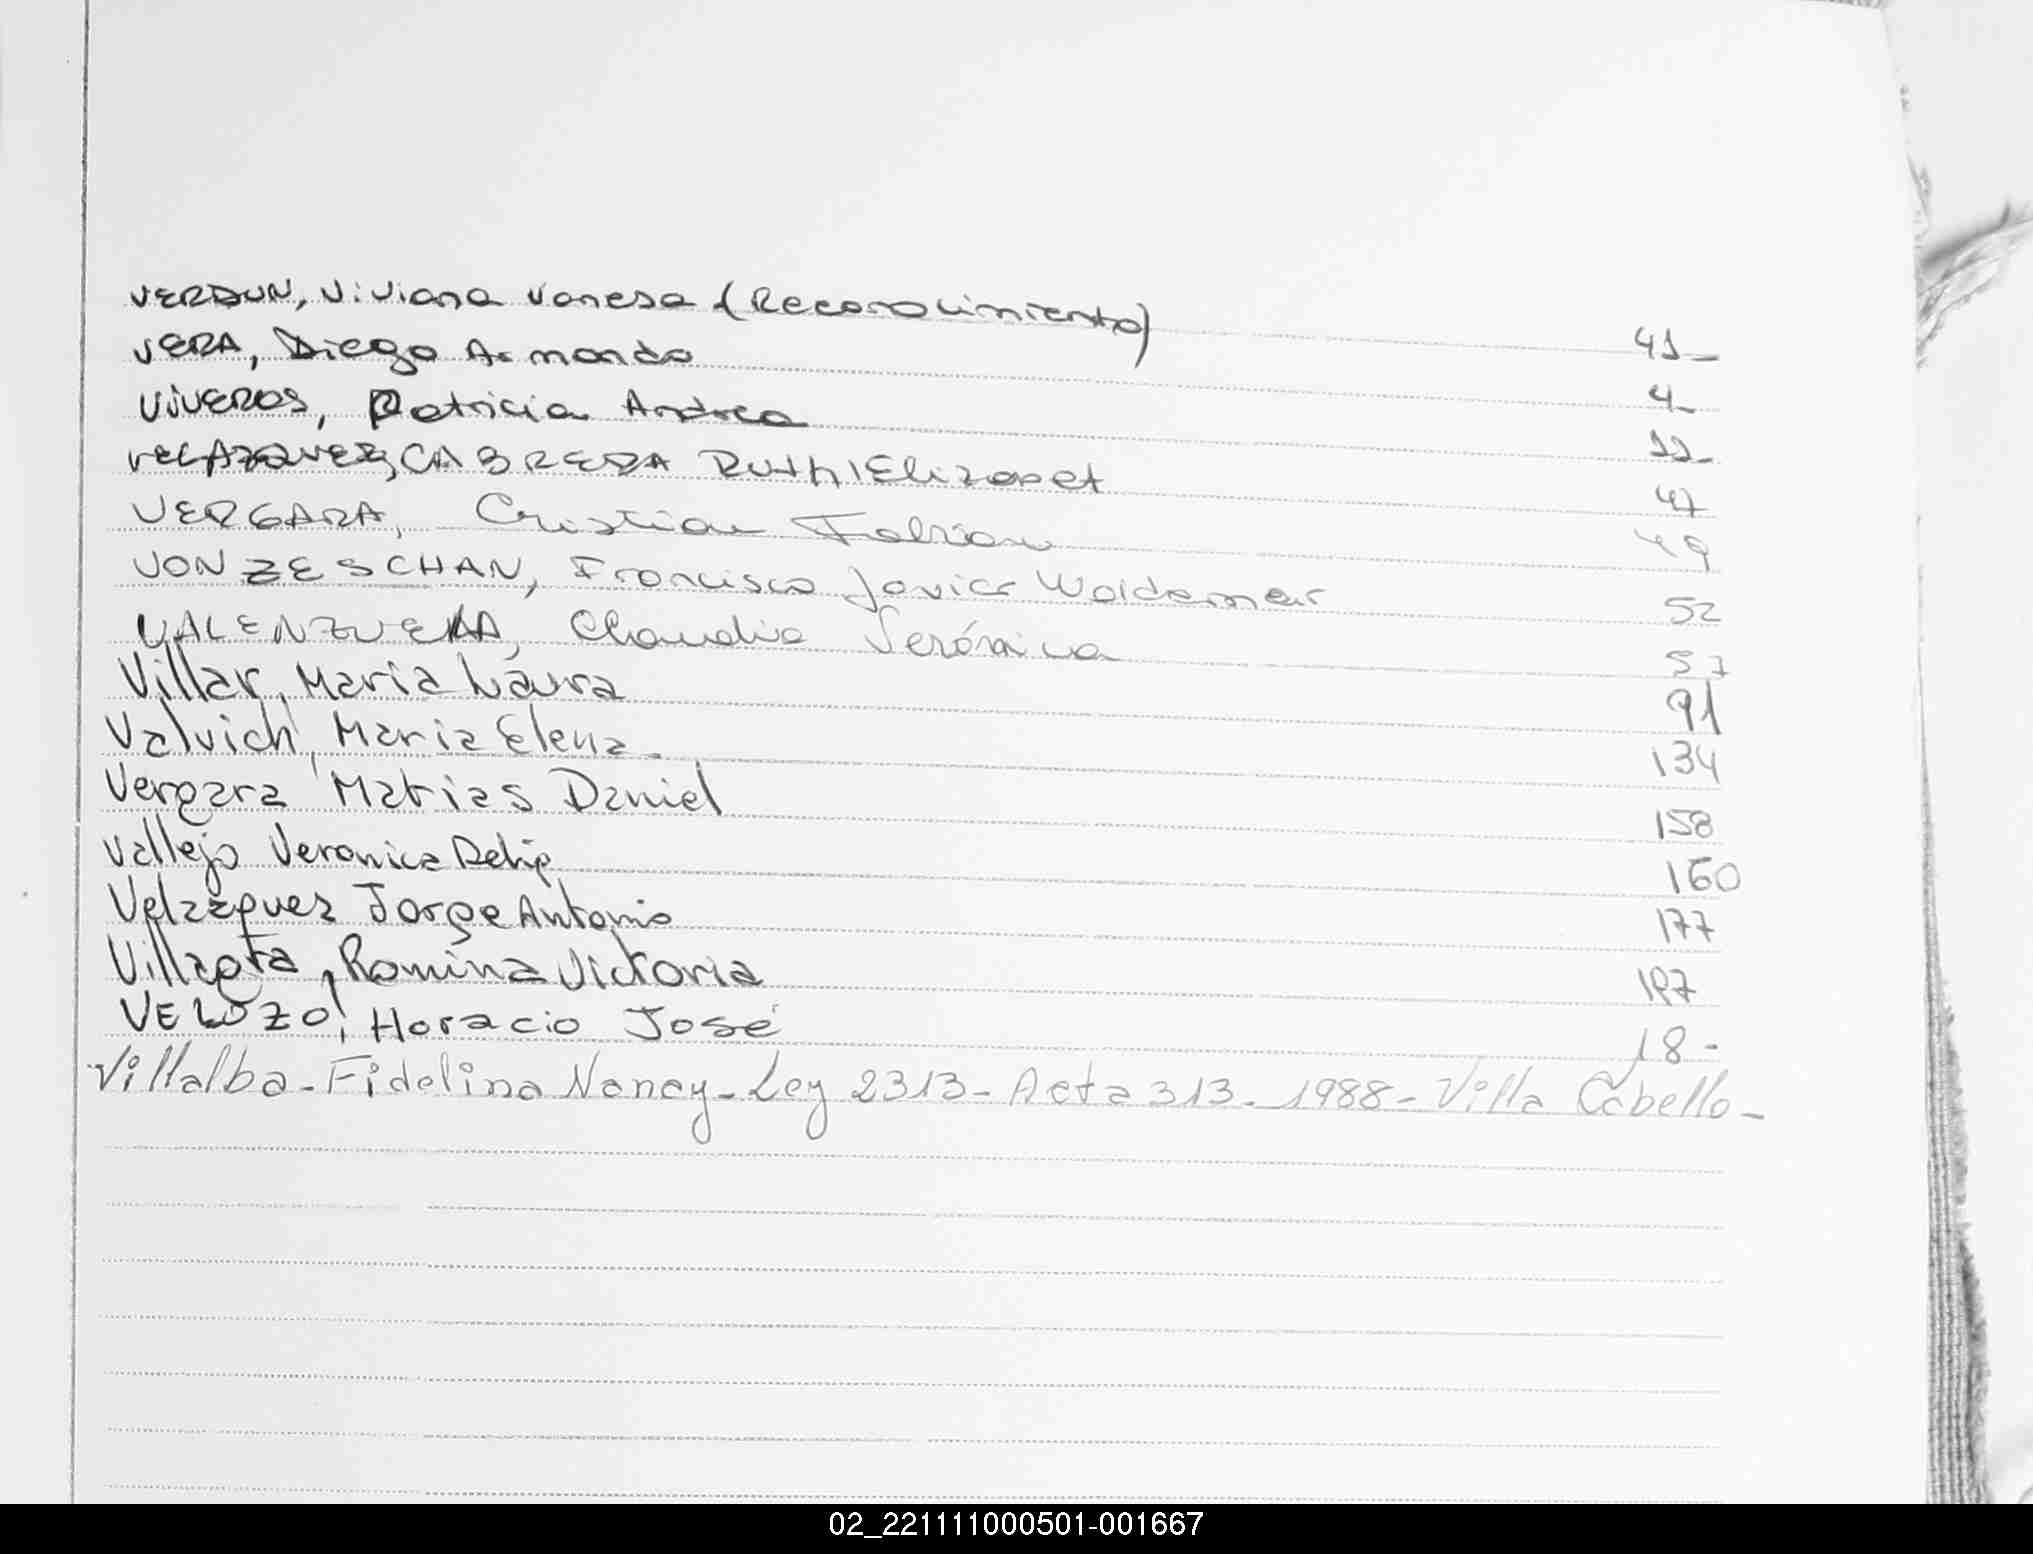 VERDUN, Viviana Vanesa (Reconocimiento) 41-
VERA, Diego Armando 4-
ViVEROS, Patricia Andrea 11-
VELAZQUEZ, CABRERA RUTH Elizabet 47
VERGARA, Cristian Fabian 49
VON ZESCHAN, Francisco Javier Waldemar 52
VALENZUELA, Claudia Verónica 57
Villar, Maria Laura 91
Valvich, Maria Elena- 134
Vergara Matias Daniel 158
Vallejo Veronica 160
Velazquez Jorge Antonio 177
Romina Victoria 197
VELOZO, Horacio José 18-
Villalba-Fidelina Nancy-Ley 2313-Acta 313-1988-Villa Cabello-
02_221111000501-001667